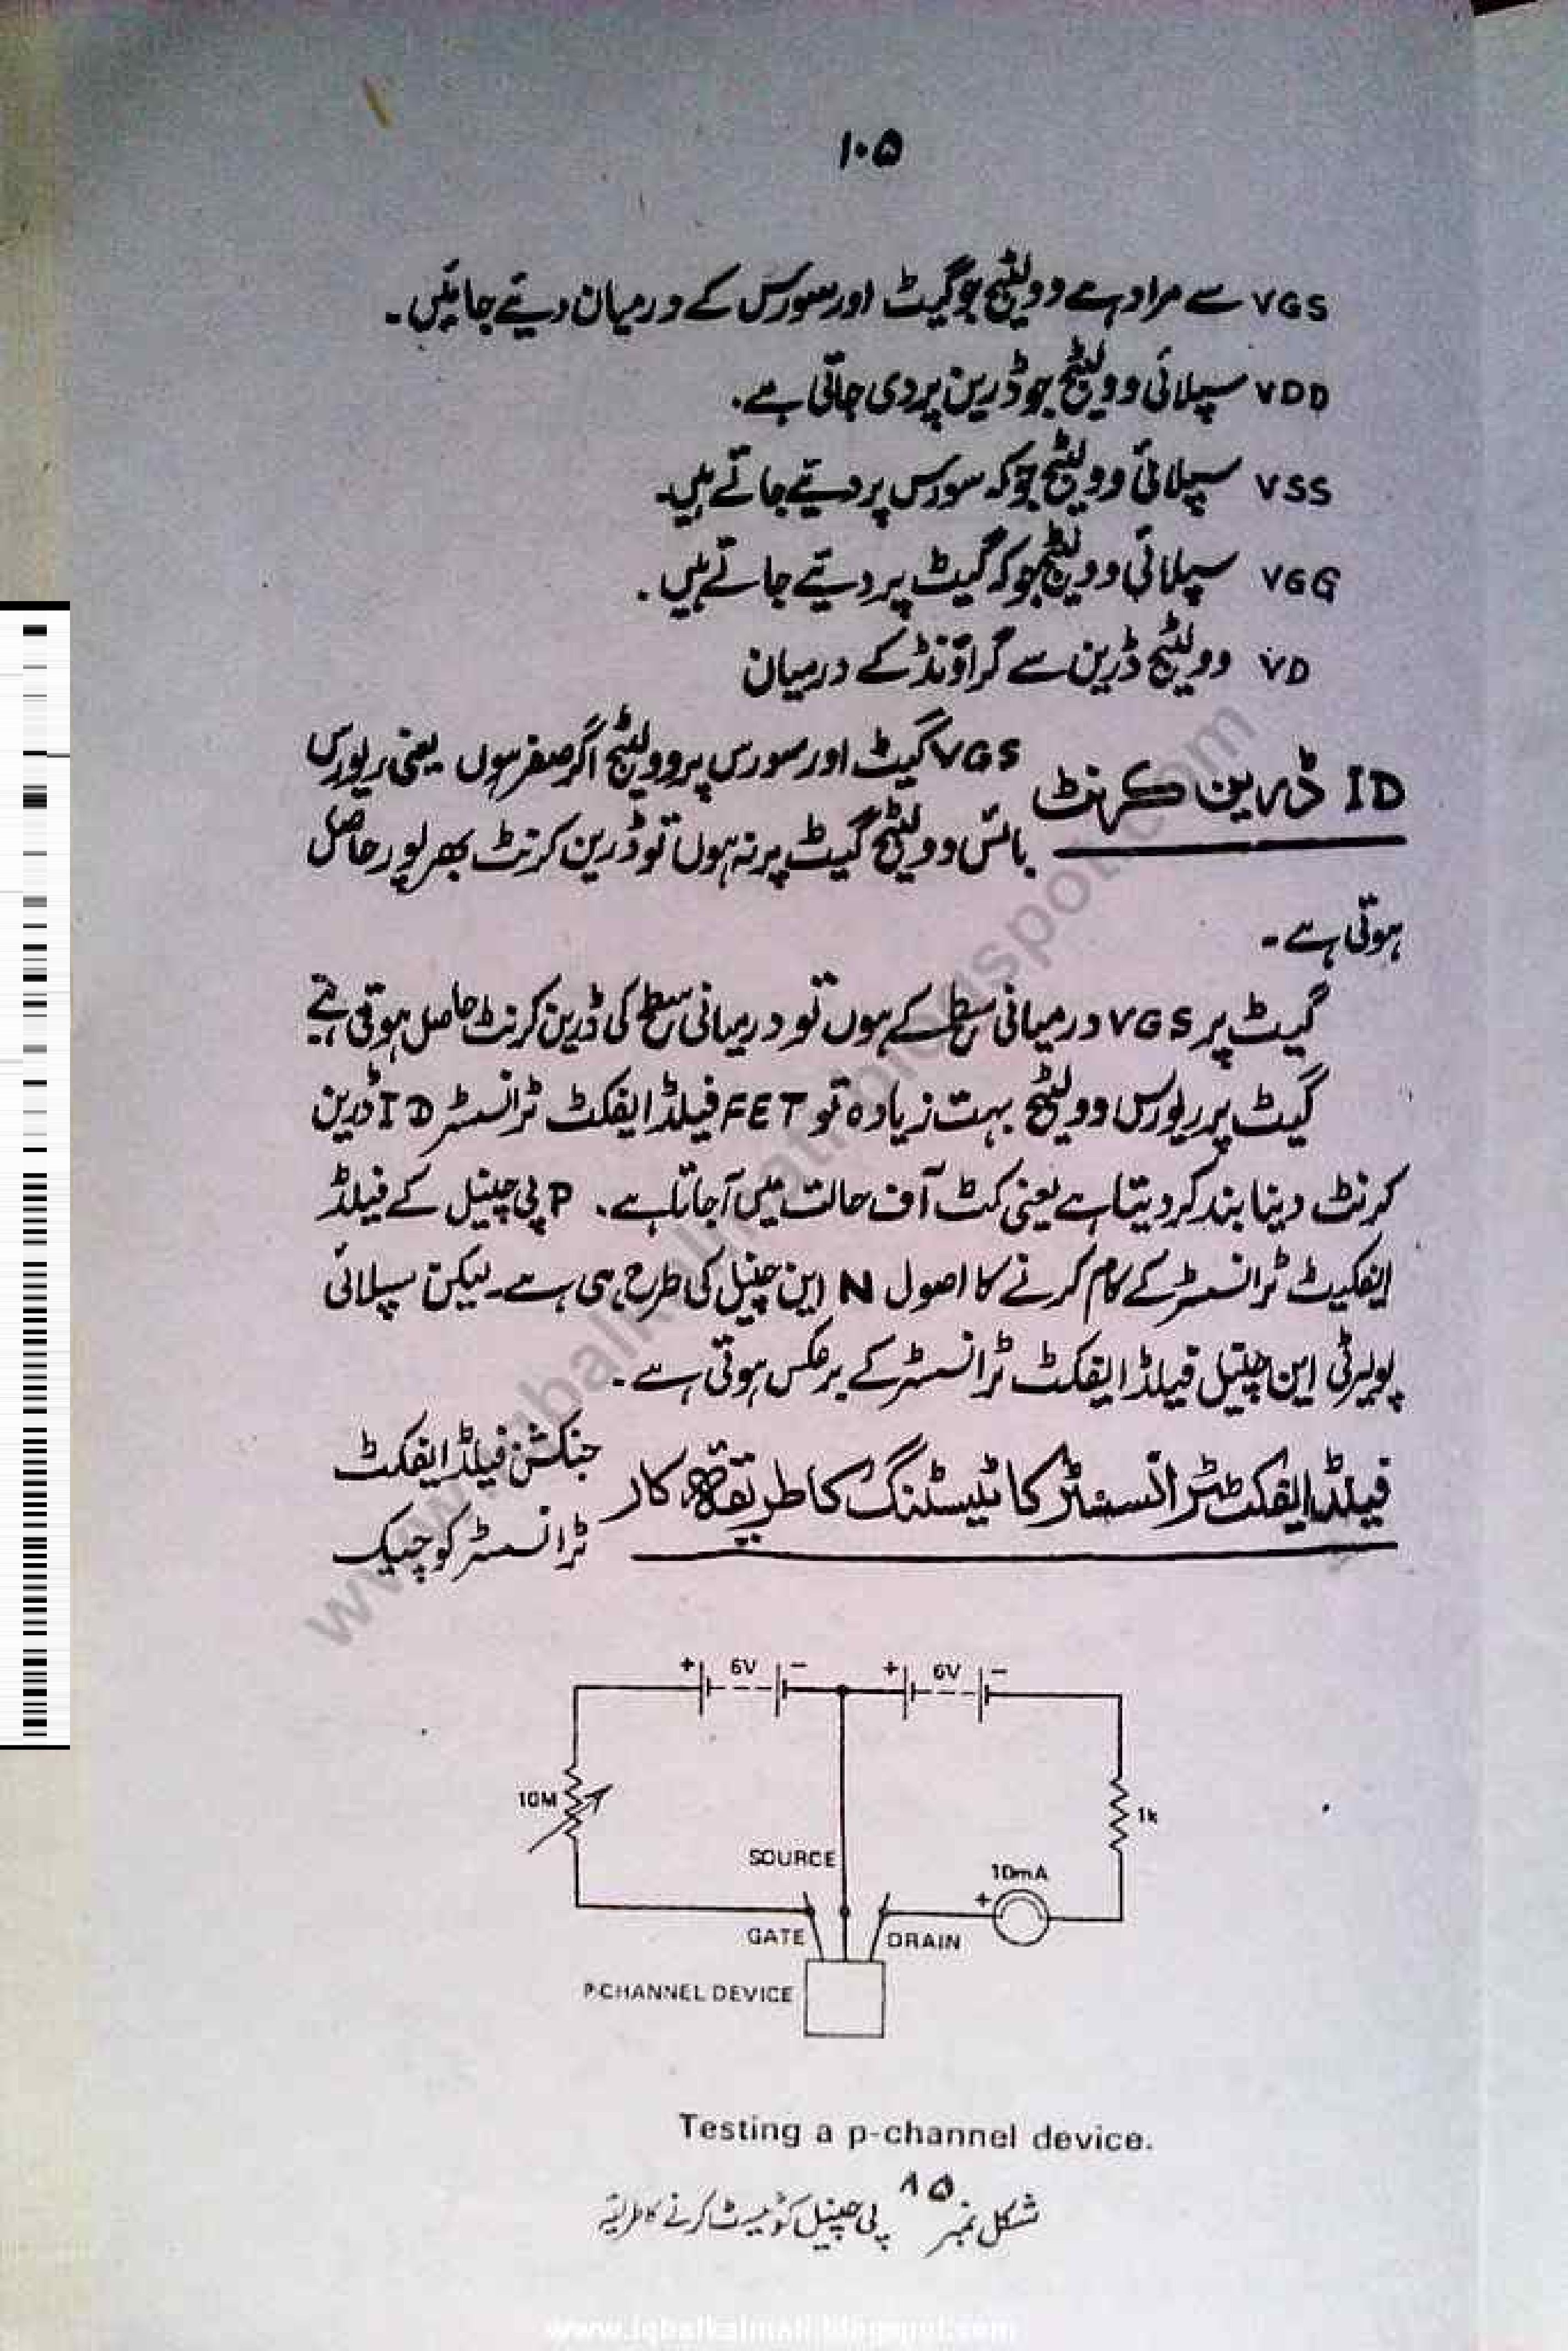 ۱۰۵
VGS سے مراد ہے وولٹیج جو گیٹ اور سورس کے درمیان دیئے جائیں۔
VDD سپلائی وولٹیج جو ڈرین پر دی جاتی ہے۔
VSS سپلائی وولٹیج جو کہ سورس پر دیئے جاتے ہیں۔
VGG سپلائی وولٹیج جو کہ گیٹ پر دیئے جاتے ہیں۔
VD وولٹیج ڈرین سے گراؤنڈ کے درمیان
ID ڈرین کرنٹ
VGS گیٹ اور سورس پر وولٹیج اگر صفر ہوں یعنی ریورس
بائس وولٹیج گیٹ پر نہ ہوں تو ڈرین کرنٹ بھرپور حاصل
ہوتی ہے۔
گیٹ پر VGS درمیانی سطح کے ہوں تو درمیانی سطح کی ڈرین کرنٹ حاصل ہوتی ہے
گیٹ پر ریورس وولٹیج بہت زیادہ تو FET فیلڈ ایفکٹ ٹرانسسٹر ID ڈرین
کرنٹ دینا بند کر دیتا ہے یعنی کٹ آف حالت میں آجاتا ہے۔ P پی چینل کے فیلڈ
ایفکیٹ ٹرانسسٹر کے کام کرنے کا اصول N این چینل کی طرح ہی ہے۔ لیکن سپلائی
پولیرٹی این چینل فیلڈ ایفکٹ ٹرانسسٹر کے برعکس ہوتی ہے۔
فیلڈ ایفکٹ ٹرانسسٹر کا ٹیسٹنگ کا طریقہ کار
جنکشن فیلڈ ایفکٹ
ٹرانسسٹر کو چیک
+ 6V − + 6V −
10M
1k
SOURCE
10mA
+
GATE
DRAIN
P-CHANNEL DEVICE
Testing a p-channel device.
شکل نمبر ۸۵ پی چینل کو ٹیسٹ کرنے کا طریقہ
www.iqbalkalmati.blogspot.com
www.iqbalkalmati.blogspot.com